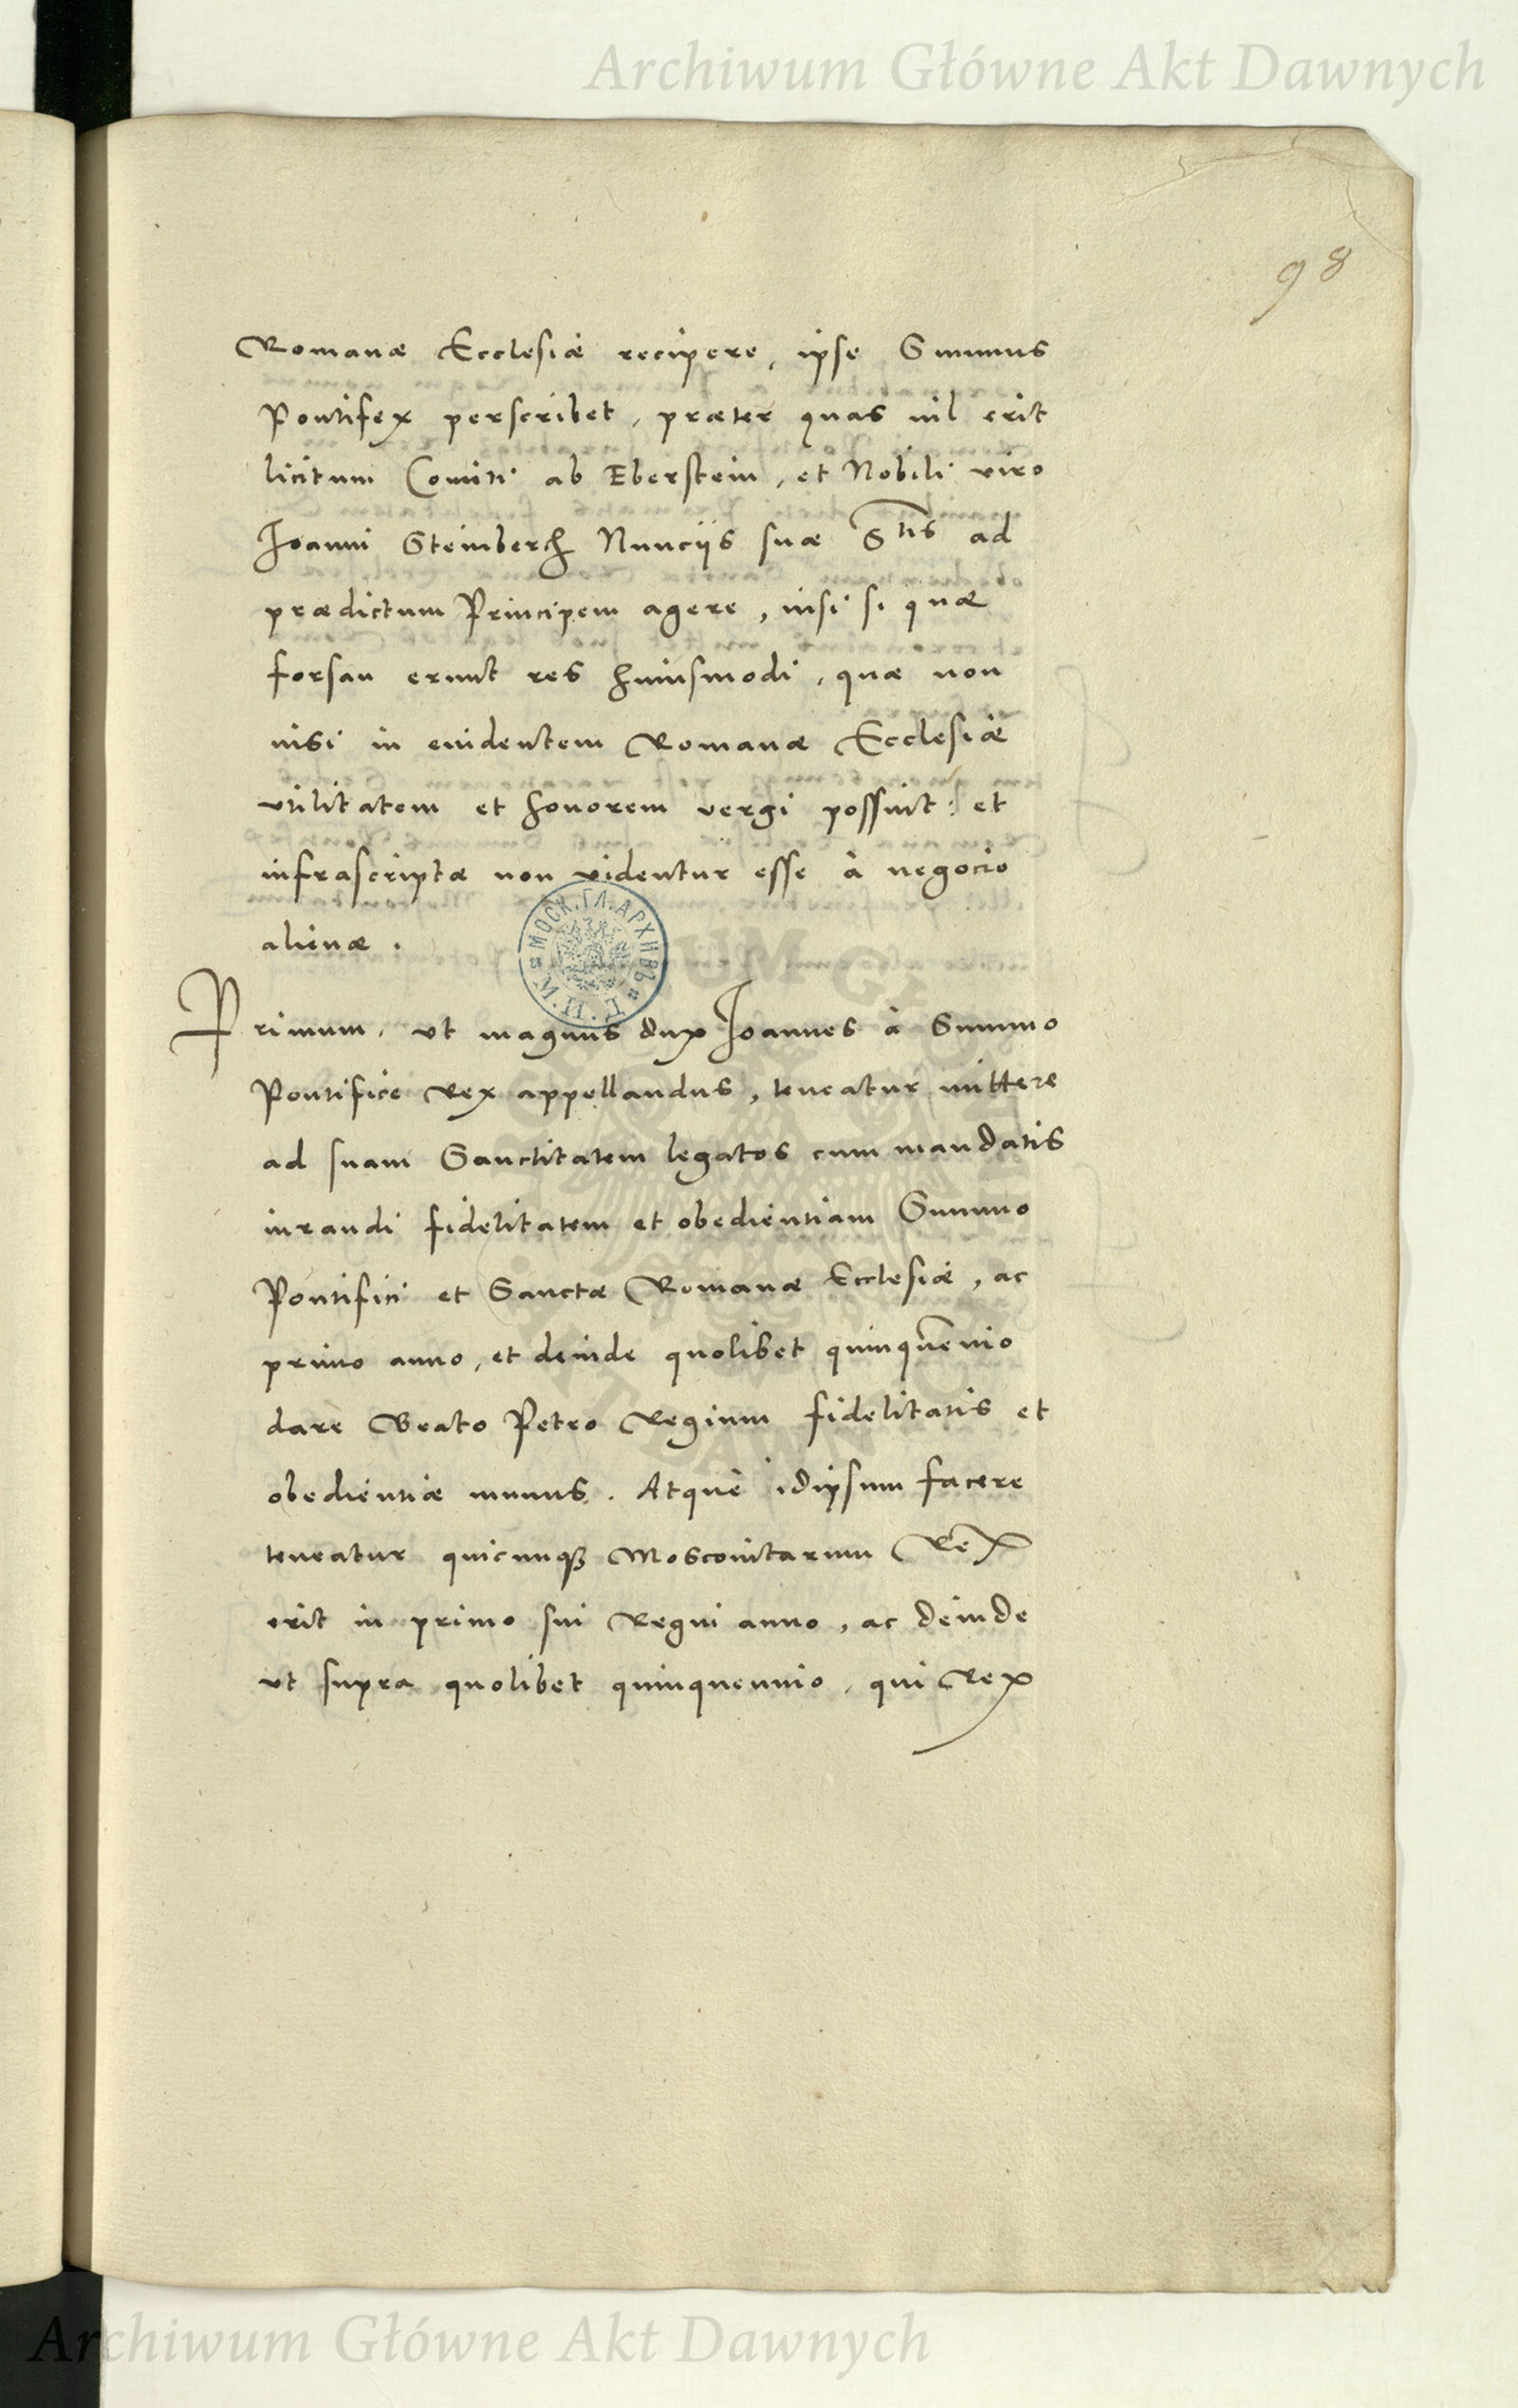 Archiwum Główne Akt Dawnych
98
Romanæ Ecclesiæ recipere, ipse Summus
Pontifex perscribet, præter quas nil erit
licitum Comiti ab Eberstein, et Nobili viro
Joanni Steinberch Nunciis suæ Stis ad
prædictum Principem agere, nisi si quæ
forsan erunt res huiusmodi, quæ non
nisi in euidentem Romanæ Ecclesiæ
vtilitatem et honorem vergi possint: et
infrascriptæ non videntur esse à negocio
alienæ.
МОСК. ГЛ. АРХИВЪ
Primum, vt magnus dux Joannes à Summo
Pontifice Rex appellandus, teneatur mittere
ad suam Sanctitatem legatos cum mandatis
iurandi fidelitatem et obedientiam Summo
Pontifici et Sanctæ Romanæ Ecclesiæ, ac
primo anno, et deinde quolibet quinquēnio
dare Beato Petro Regium fidelitatis et
obedientiæ munus. Atque idipsum facere
teneatur quicunqȝ Moscouitarum Rex
erit in primo sui Regni anno, ac deinde
vt supra quolibet quinquennio, qui Rex
Archiwum Główne Akt Dawnych